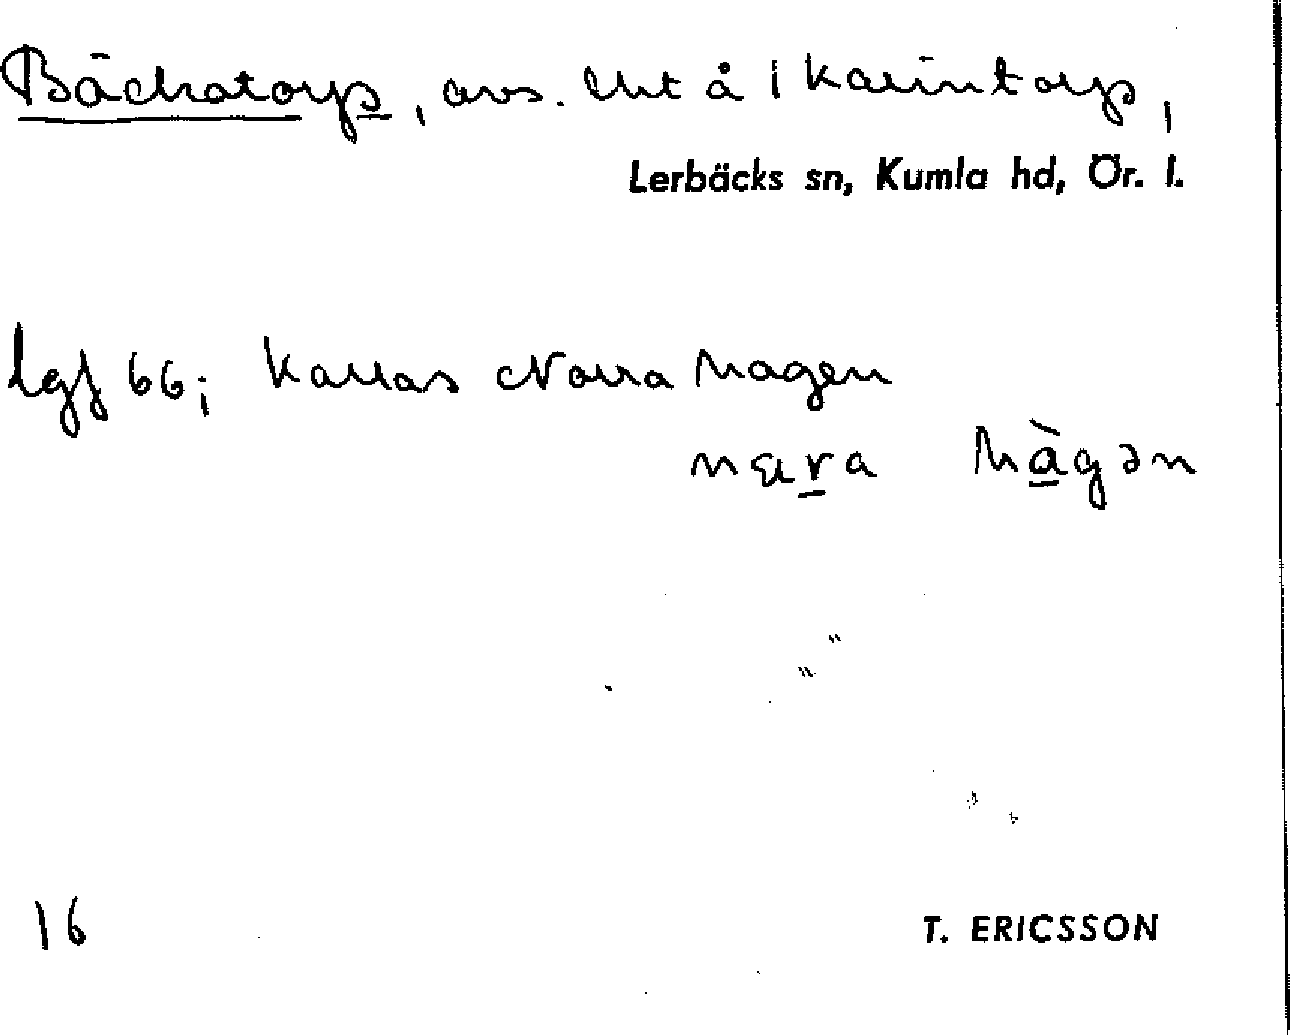 Bäckatorp, avs. lht å 1 Karintorp,
Lerbäcks sn, Kumla hd, Ör. l.
lgf 66; kallas Norra Hagen
Hàgən
16
T. ERICSSON